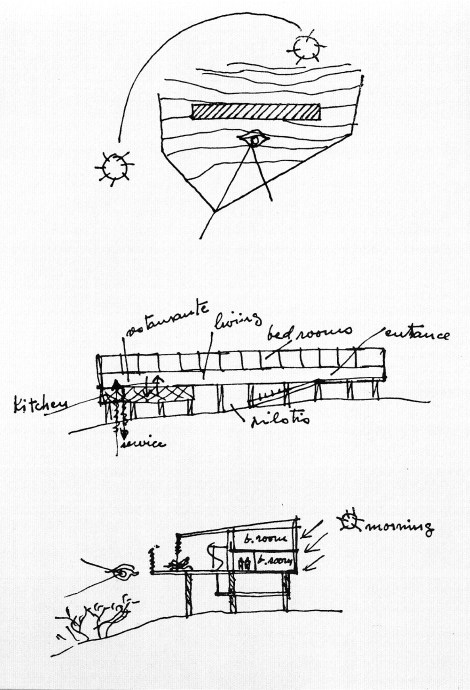 restaurante
living
bed rooms
entrance
Kitchen
pilotis
service
b.room
b.room
morning